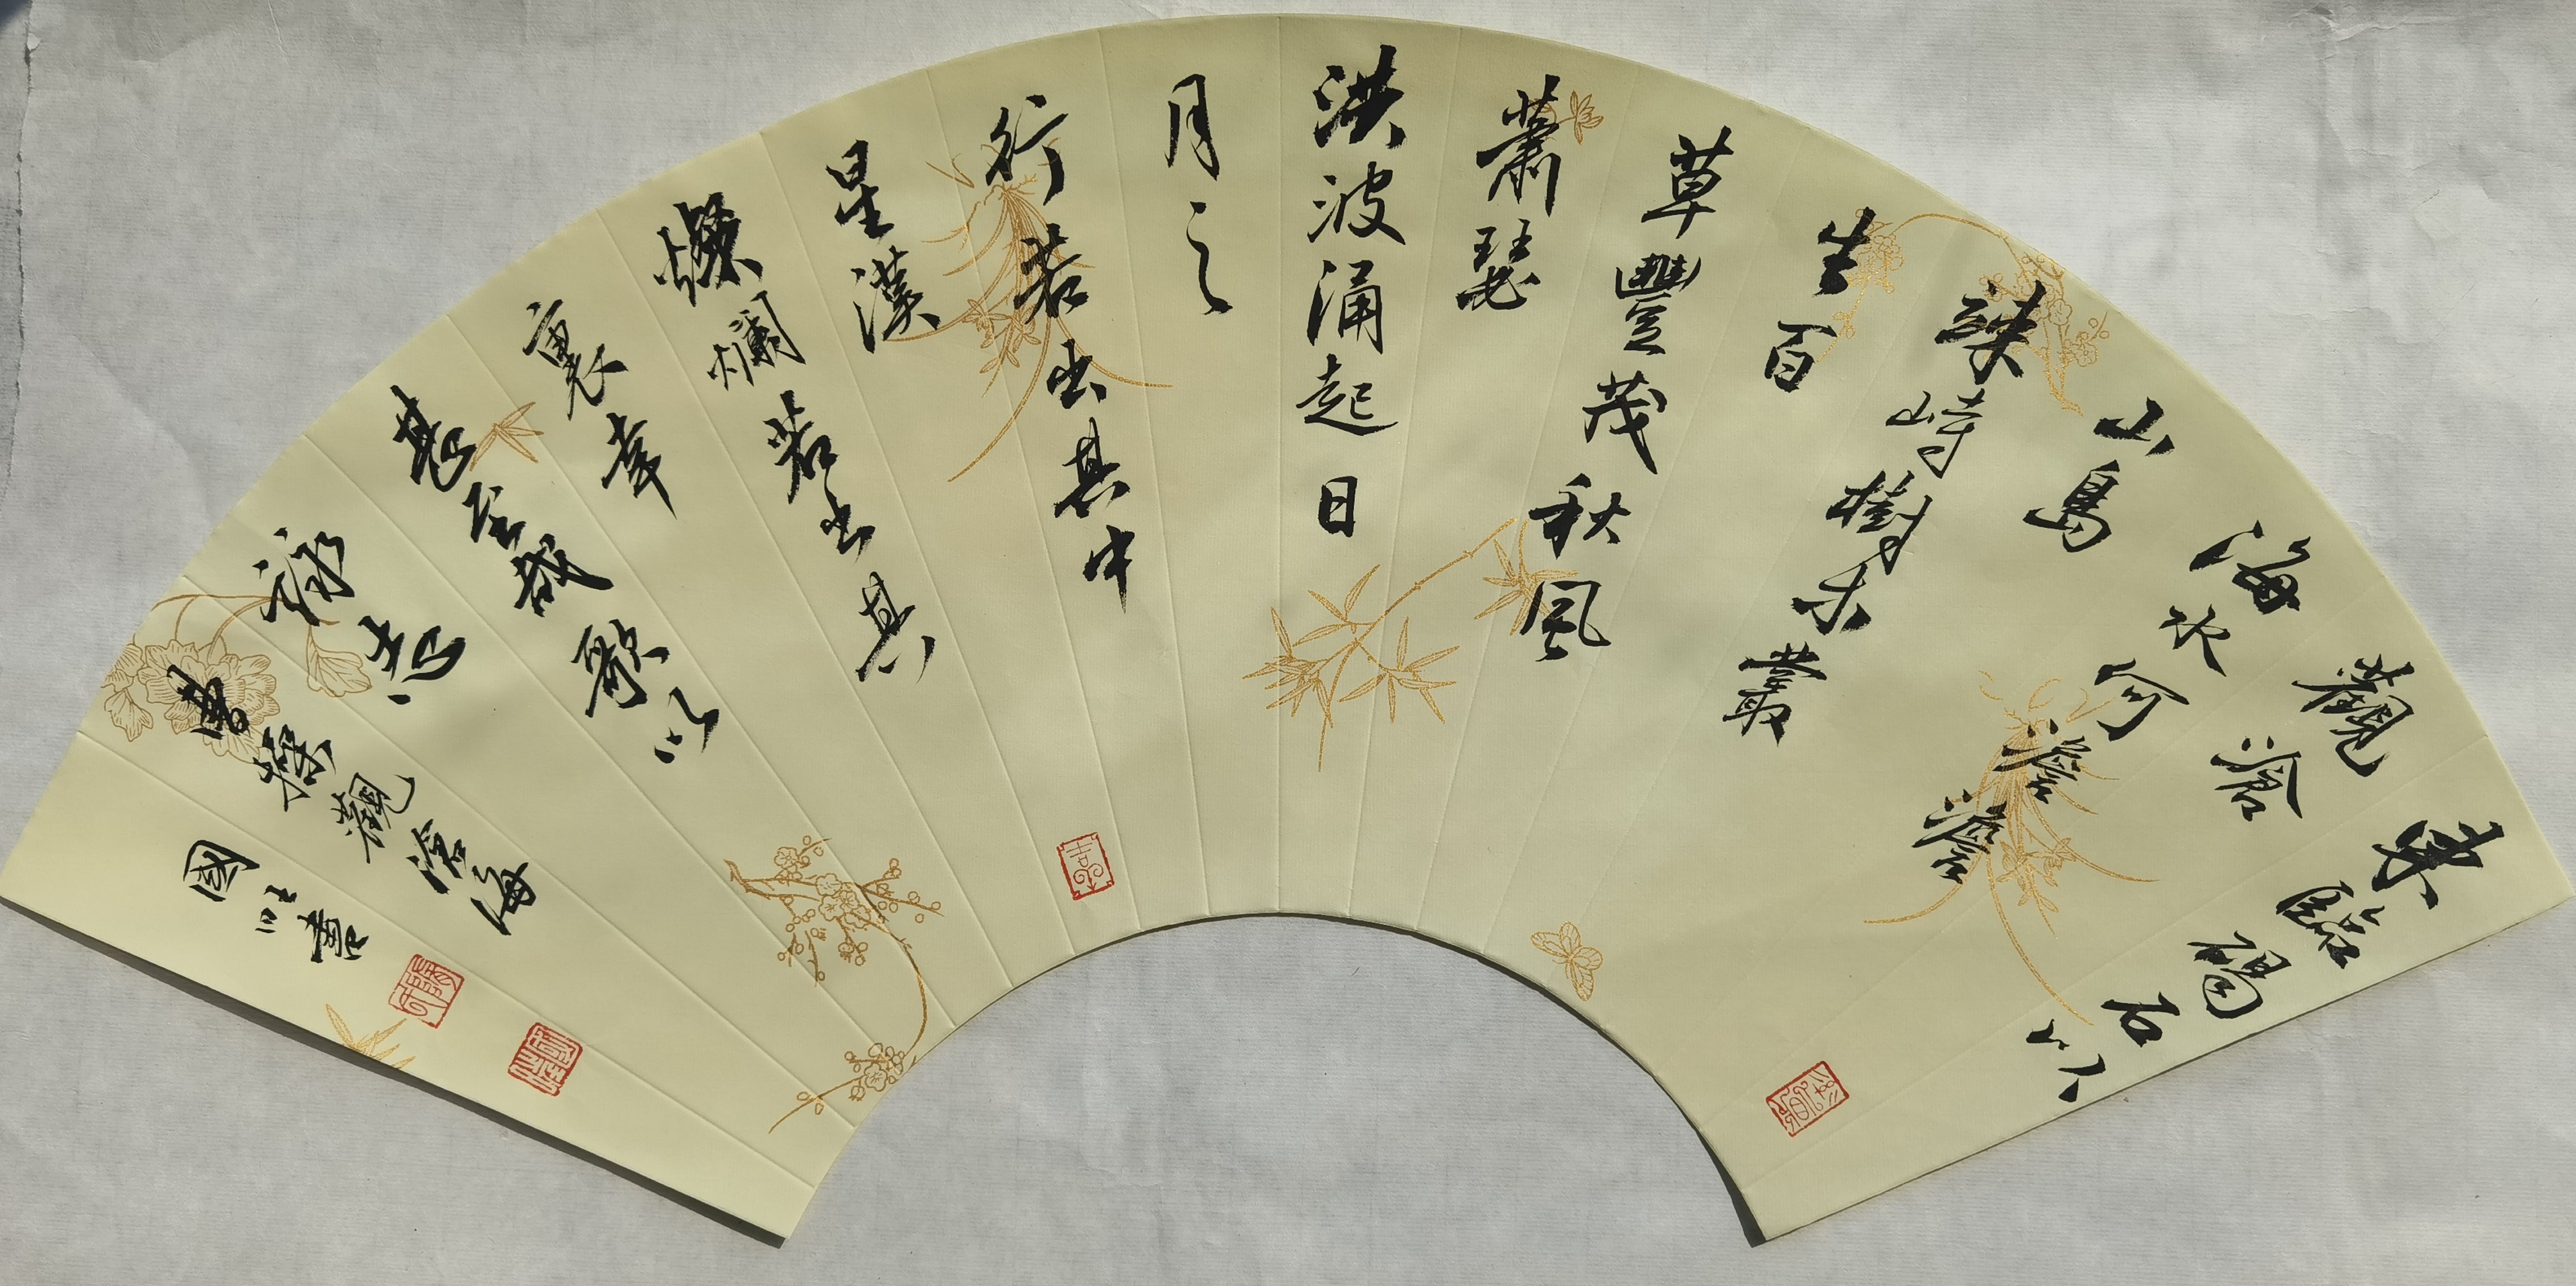 東臨碣石以
觀滄
海水何澹澹
山島
竦峙樹木叢
生百
草豐茂秋風
蕭瑟
洪波涌起日
月之
行若出其中
星漢
燦爛若出其
裏幸
甚至哉歌以
詠志
曹操觀滄海
國書